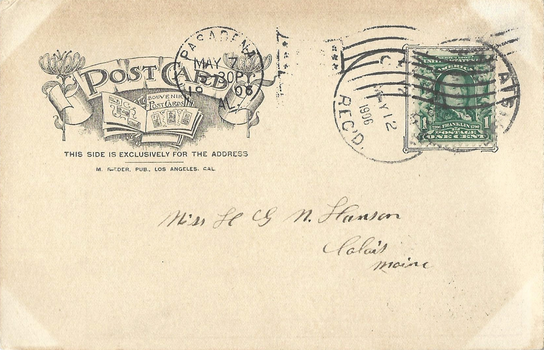 PASADENA
MAY 7
30 PM
1906
CAL.
POST CARD
SOUVENIR
POST CARDS
THIS SIDE IS EXCLUSIVELY FOR THE ADDRESS
M. RIEDER, PUB., LOS ANGELES, CAL.
MAY 12
1906
REC'D.
FRANKLIN
POSTAGE
ONE CENT
Miss H G N. Hanson
Calais
Maine